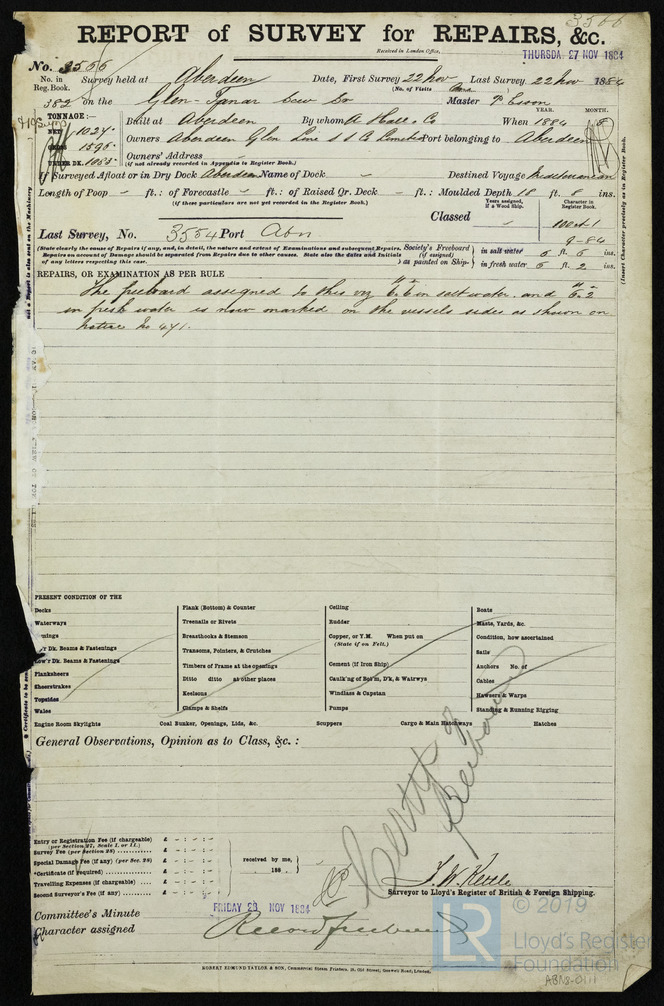 3566
REPORT of SURVEY for REPAIRS, &c.
Received in London Office, THURSDA 27 NOV 1884
No. 3566
No. in Reg. Book. Survey held at Aberdeen Date, First Survey 22 Nov Last Survey 22 Nov 1884
(No. of Visits
382 on the Glen-Tanar Screw Sr Master
TONNAGE:- YEAR. MONTH.
NET 1024 Built at Aberdeen By whom A Hall & Co When 1884 8
GROSS 1595 Owners Aberdeen Glen Line S S Co Limited Port belonging to Aberdeen
UNDER DK. 1055 Owners' Address
(if not already recorded in Appendix to Register Book.)
If Surveyed Afloat or in Dry Dock Aberdeen Name of Dock Destined Voyage
Length of Poop ft.: of Forecastle ft.: of Raised Qr. Deck ft.: Moulded Depth 18 ft. 8 ins.
(if these particulars are not yet recorded in the Register Book.)
Years assigned, if a Wood Ship. Character in Register Book.
Classed 100 A 1
Last Survey, No. 3554 Port Abn 9-84
(State clearly the cause of Repairs if any, and, in detail, the nature and extent of Examinations and subsequent Repairs.
Repairs on account of Damage should be separated from Repairs due to other causes. State also the dates and Initials
of any letters respecting this case.
Society's Freeboard (if assigned) as painted on Ship- in salt water 6 ft. 6 ins.
in fresh water 6 ft. 2 ins.
REPAIRS, OR EXAMINATION AS PER RULE
The freeboard assigned to this viz 6. 6 in salt water. and 6. 2
in fresh water is now marked on the vessels sides as shown on
notice No 471.
PRESENT CONDITION OF THE
Decks
Waterways
Plank (Bottom) & Counter
Treenails or Rivets
Breasthooks & Stemson
Transoms, Pointers, & Crutches
Timbers of Frame at the openings
Ditto ditto at other places
Keelsons
Clamps & Shelfs
Ceiling
Rudder
Copper, or Y.M. When put on
(State if on Felt.)
Cement (if Iron Ship)
Caulk'ng of Bot'm, D'k, & Watrwys
Windlass & Capstan
Pumps
Boats
Masts, Yards, &c.
Condition, how ascertained
Sails
Anchors No. of
Cables
Hawsers & Warps
Standing & Running Rigging
Low'r Dk. Beams & Fastenings
Planksheers
Sheerstrakes
Topsides
Wales
Engine Room Skylights Coal Bunker, Openings, Lids, &c. Scuppers Cargo & Main Hatchways Hatches
General Observations, Opinion as to Class, &c. :
Entry or Registration Fee (if chargeable) £
(per Section 27, Scale I. or II.)
Survey Fee (per Section 28) £
Special Damage Fee (if any) (per Sec. 28) £
*Certificate (if required) £
Travelling Expenses (if chargeable) £
Second Surveyor's Fee (if any) £
received by me,
188
Certf of Freeboard
J. W. Kettle
Surveyor to Lloyd's Register of British & Foreign Shipping.
Committee's Minute FRIDAY 28 NOV 1884
Character assigned Record freeboard
ROBERT EDMUND TAYLOR & SON, Commercial Steam Printers, 19, Old Street, Goswell Road, London.
(Insert Character precisely as in Register Book.)
© 2019
LR
Lloyd's Register
Foundation
ABN8-0111